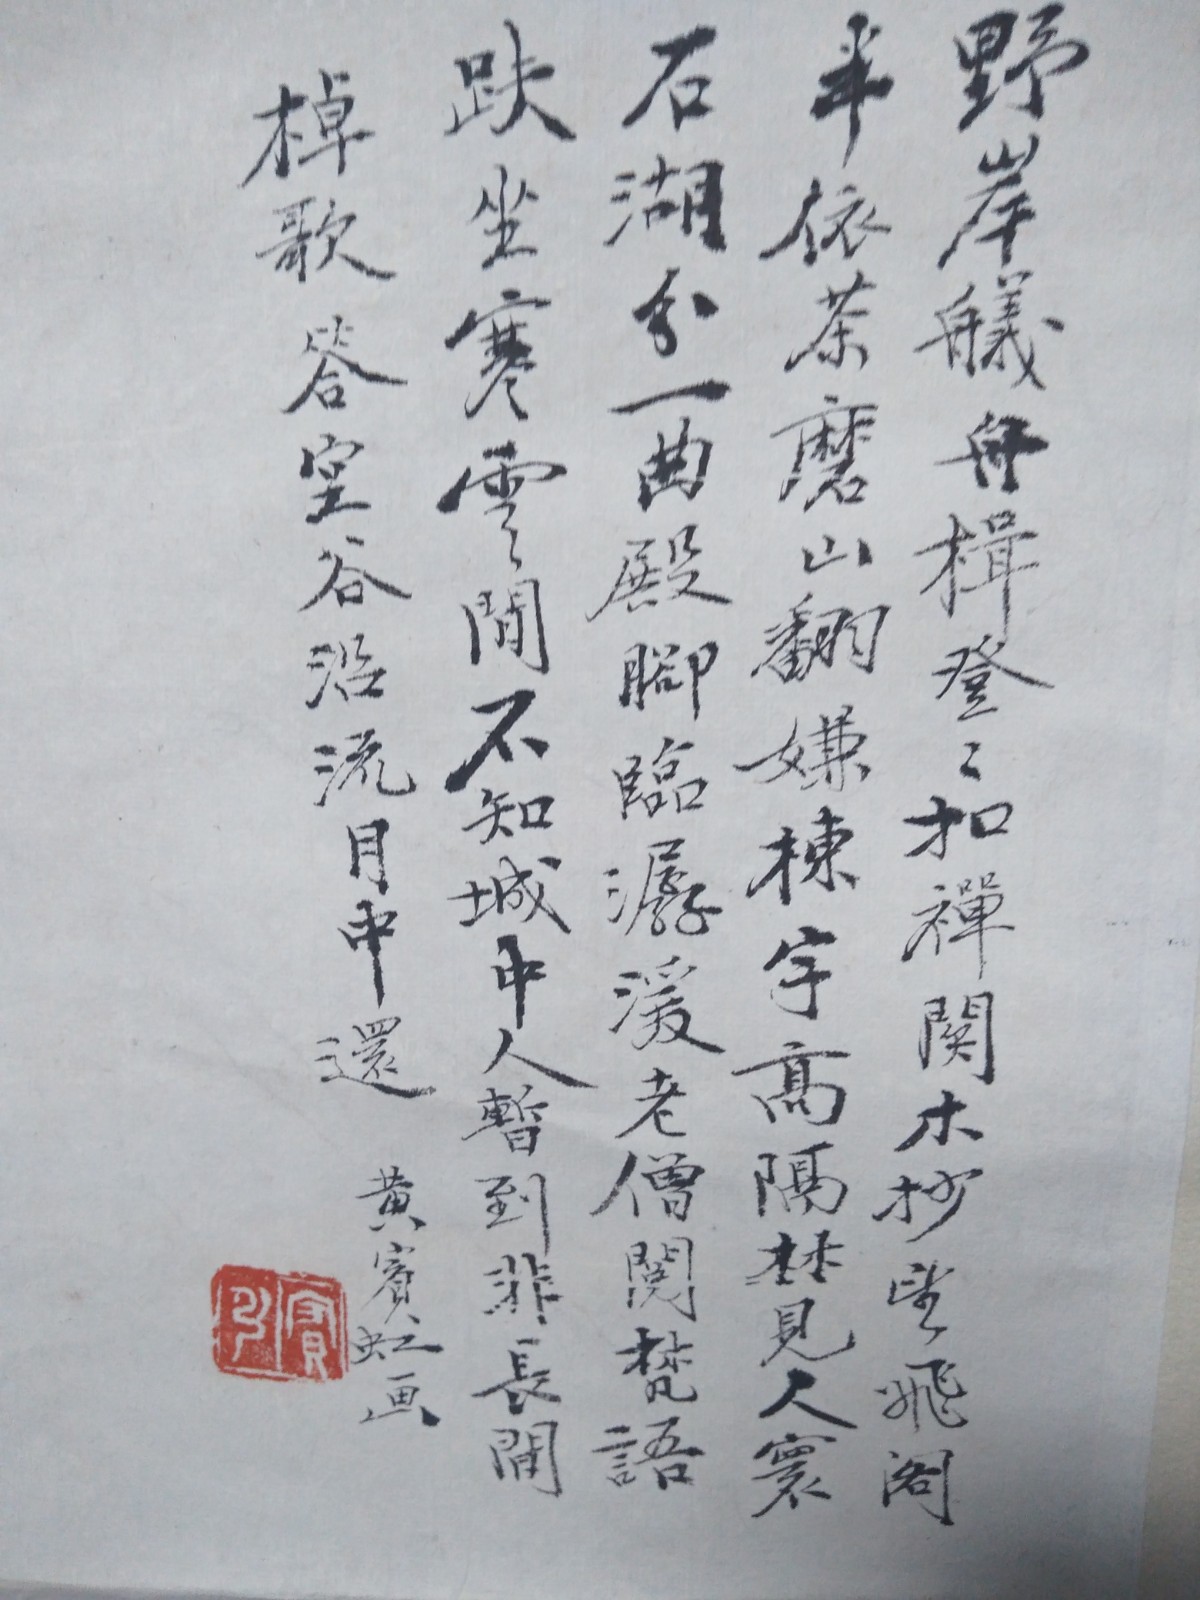 野岸艤舟楫登〻扣禪関木杪望飛阁
半依茶磨山翻嫌棟宇高隔林見人寰
石湖分一曲殿腳臨潺湲老僧閲梵語
趺坐寒雲間不知城中人暫到非長閒
棹歌答空谷沿流月中還
黄賓虹画
賓